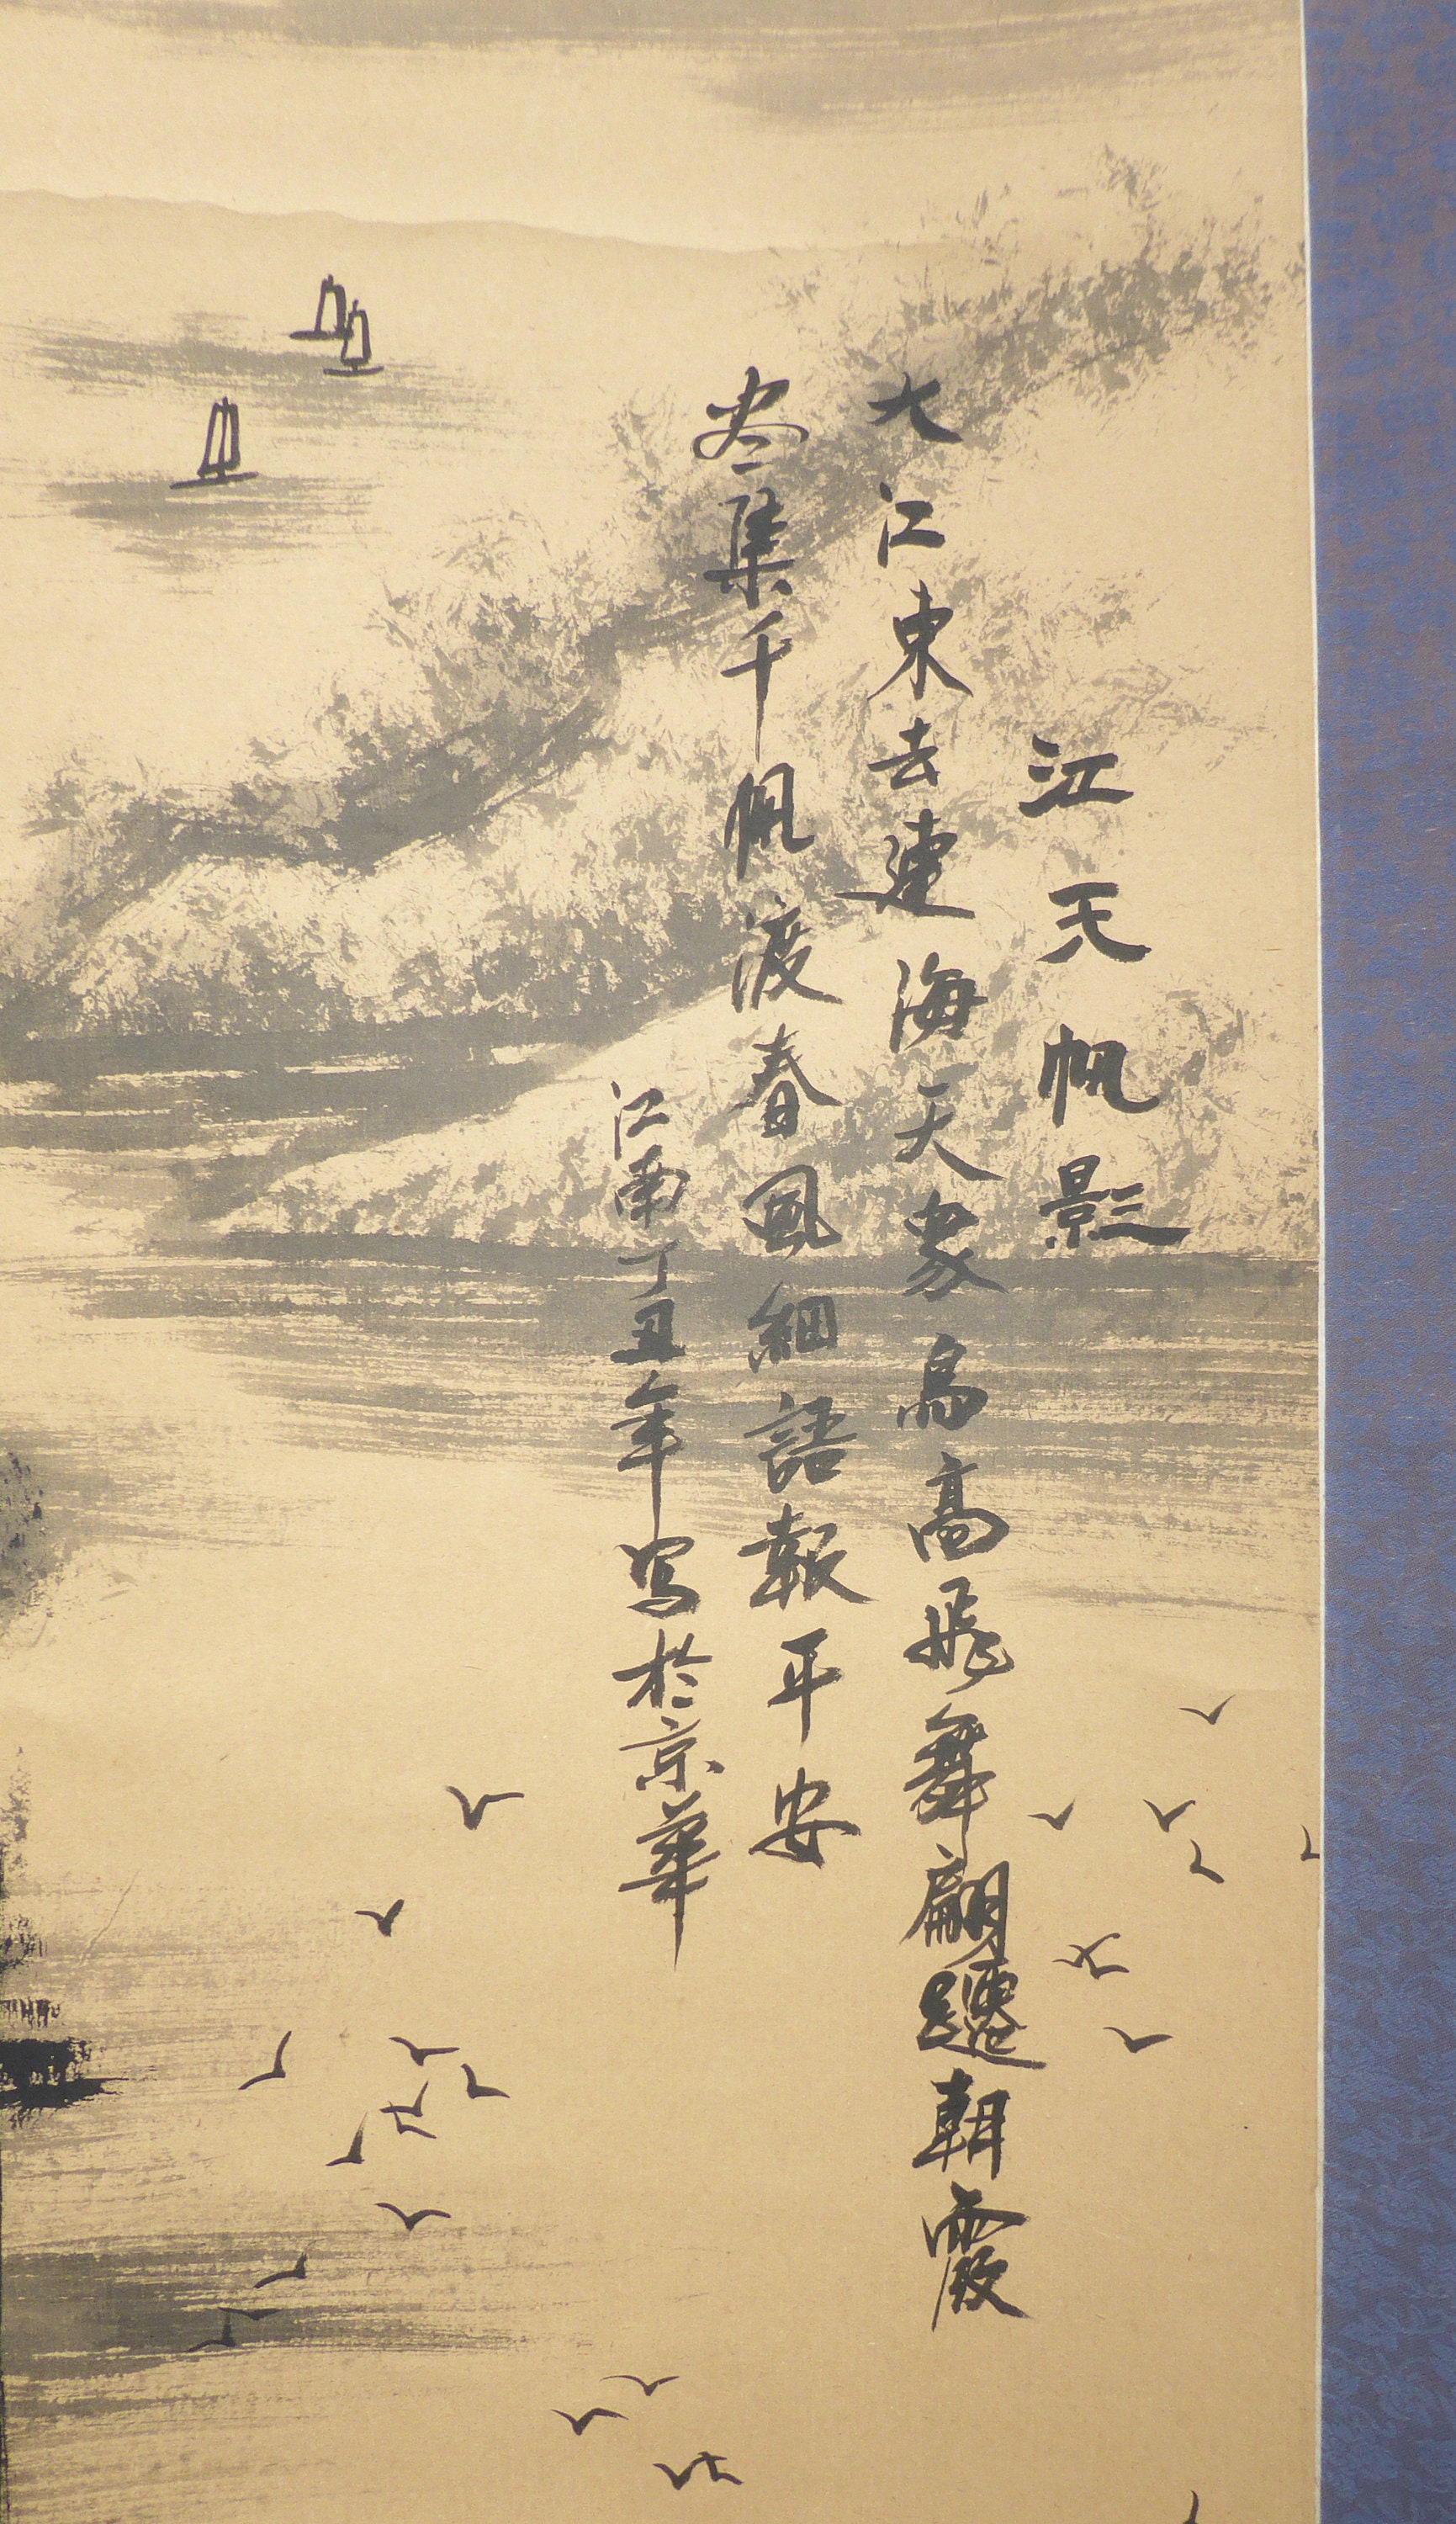 江天帆影
大江東去連海天衆鳥高飛舞翩躚朝霞
尽集千帆渡春風細語報平安
江南丁丑年写於京華